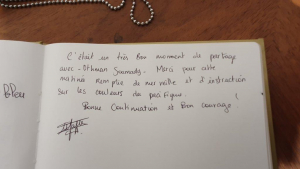 C'était un très bon moment de partage
avec Othman Merci pour cette
matinée remplie de et d'instruction
sur les couleurs du pacifique.
Bonne Continuation et Bon courage !